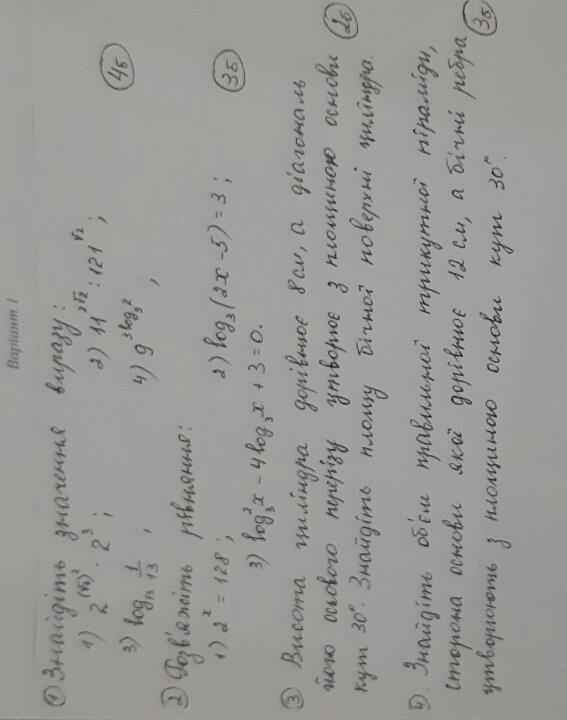 Варіант 1
① Знайдіть значення виразу:
1) 2^(√5)² · 2³ ; 2) 11^2√2 : 121^√2 ;
3) log₁₃ 1/13 ; 4) 9^3log₉2 ; (4б)
② Розв'яжіть рівняння:
1) 2^x = 128 ; 2) log₃(2x-5) = 3 ; (3б)
3) log₃²x - 4log₃x + 3 = 0.
③ Висота циліндра дорівнює 8 см, а діагональ
його осьового перерізу утворює з площиною основи
кут 30°. Знайдіть площу бічної поверхні циліндра. (2б)
④. Знайдіть об'єм правильної трикутної піраміди,
сторона основи якої дорівнює 12 см, а бічні ребра
утворюють з площиною основи кут 30°. (3б)